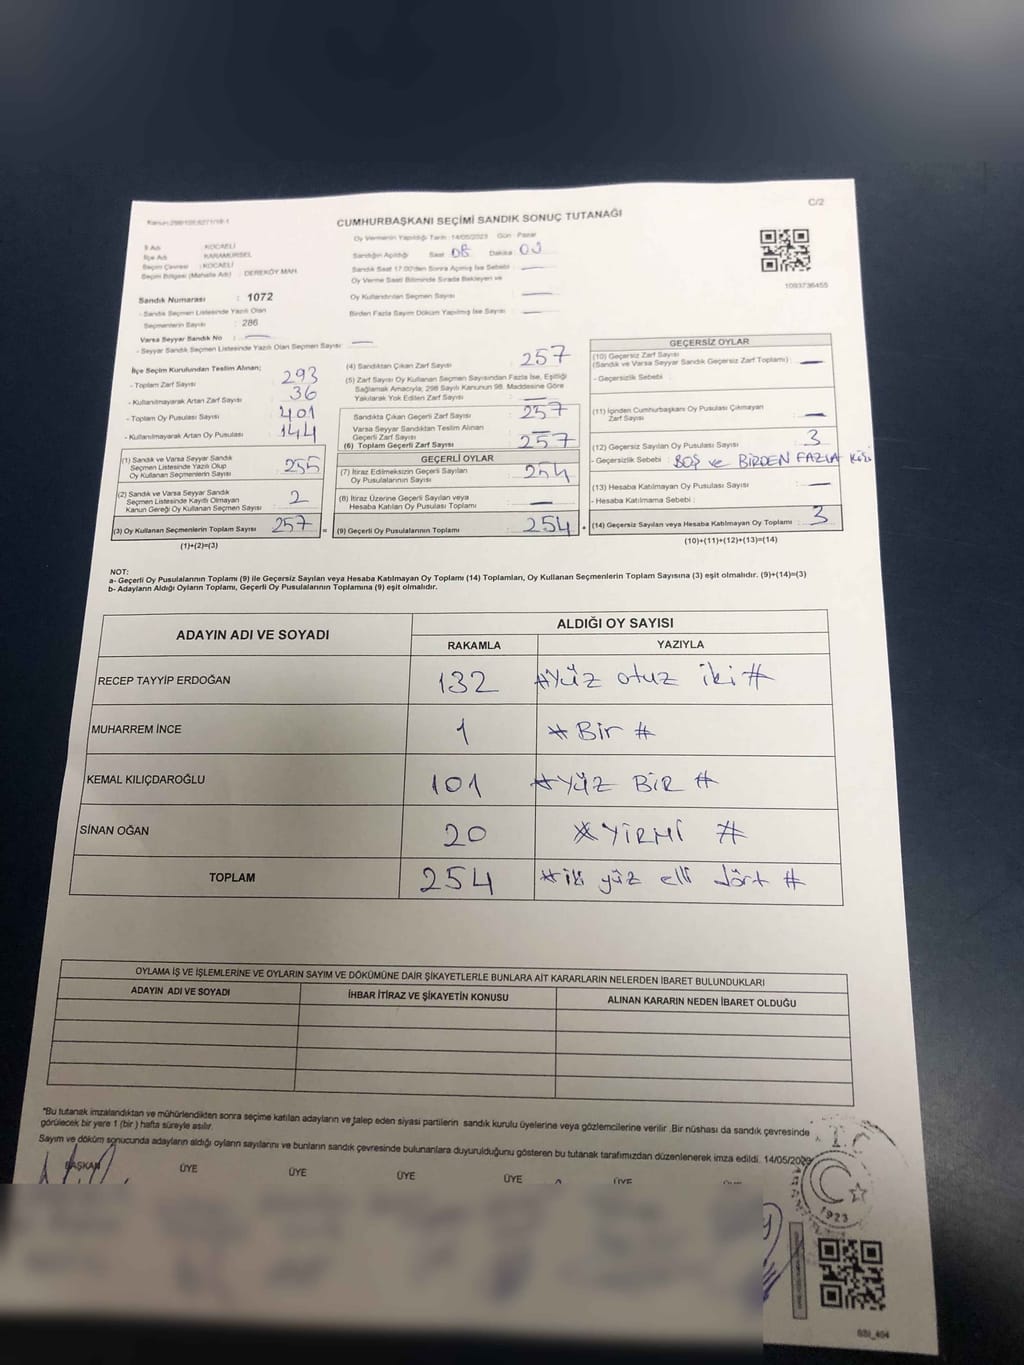 C/2
CUMHURBAŞKANI SEÇİMİ SANDIK SONUÇ TUTANAĞI
Oy Vermenin Yapıldığı Tarih :14/05/2023 Gün : Pazar
İl Adı : KOCAELİ
İlçe Adı : KARAMÜRSEL
Seçim Çevresi : KOCAELİ
Seçim Bölgesi (Mahalle Adı) : DEREKÖY MAH.
Sandığın Açıldığı Saat 08 Dakika : 03
Sandık Saat 17:00'den Sonra Açılmış İse Sebebi :
Oy Verme Saati Bitiminde Sırada Bekleyen ve
Oy Kullandırılan Seçmen Sayısı :
Birden Fazla Sayım Döküm Yapılmış İse Sayısı :
1093736455
Sandık Numarası : 1072
- Sandık Seçmen Listesinde Yazılı Olan
Seçmenlerin Sayısı : 286
Varsa Seyyar Sandık No :
- Seyyar Sandık Seçmen Listesinde Yazılı Olan Seçmen Sayısı :
İlçe Seçim Kurulundan Teslim Alınan;
- Toplam Zarf Sayısı : 293
- Kullanılmayarak Artan Zarf Sayısı : 36
- Toplam Oy Pusulası Sayısı : 401
- Kullanılmayarak Artan Oy Pusulası : 144
(1) Sandık ve Varsa Seyyar Sandık
Seçmen Listesinde Yazılı Olup
Oy Kullanan Seçmenlerin Sayısı : 255
(2) Sandık ve Varsa Seyyar Sandık
Seçmen Listesinde Kayıtlı Olmayan
Kanun Gereği Oy Kullanan Seçmen Sayısı : 2
(3) Oy Kullanan Seçmenlerin Toplam Sayısı : 257 =
(1)+(2)=(3)
(4) Sandıktan Çıkan Zarf Sayısı : 257
(5) Zarf Sayısı Oy Kullanan Seçmen Sayısından Fazla İse, Eşitliği
Sağlamak Amacıyla; 298 Sayılı Kanunun 98. Maddesine Göre
Yakılarak Yok Edilen Zarf Sayısı :
Sandıkta Çıkan Geçerli Zarf Sayısı : 257
Varsa Seyyar Sandıktan Teslim Alınan
Geçerli Zarf Sayısı :
(6) Toplam Geçerli Zarf Sayısı : 257
GEÇERLİ OYLAR
(7) İtiraz Edilmeksizin Geçerli Sayılan
Oy Pusulalarının Sayısı : 254
(8) İtiraz Üzerine Geçerli Sayılan veya
Hesaba Katılan Oy Pusulası Toplamı :
(9) Geçerli Oy Pusulalarının Toplamı : 254 +
GEÇERSİZ OYLAR
(10) Geçersiz Zarf Sayısı
(Sandık ve Varsa Seyyar Sandık Geçersiz Zarf Toplamı) :
- Geçersizlik Sebebi :
(11) İçinden Cumhurbaşkanı Oy Pusulası Çıkmayan
Zarf Sayısı :
(12) Geçersiz Sayılan Oy Pusulası Sayısı : 3
- Geçersizlik Sebebi : BOŞ ve BİRDEN FAZLA
(13) Hesaba Katılmayan Oy Pusulası Sayısı :
- Hesaba Katılmama Sebebi :
(14) Geçersiz Sayılan veya Hesaba Katılmayan Oy Toplamı : 3
(10)+(11)+(12)+(13)=(14)
NOT:
a- Geçerli Oy Pusulalarının Toplamı (9) ile Geçersiz Sayılan veya Hesaba Katılmayan Oy Toplamı (14) Toplamları, Oy Kullanan Seçmenlerin Toplam Sayısına (3) eşit olmalıdır. (9)+(14)=(3)
b- Adayların Aldığı Oyların Toplamı, Geçerli Oy Pusulalarının Toplamına (9) eşit olmalıdır.
ADAYIN ADI VE SOYADI ALDIĞI OY SAYISI
RAKAMLA YAZIYLA
RECEP TAYYİP ERDOĞAN 132 #Yüz otuz iki #
MUHARREM İNCE 1 # Bir #
KEMAL KILIÇDAROĞLU 101 #YÜZ BİR #
SİNAN OĞAN 20 #YİRMİ #
TOPLAM 254 #iki yüz elli dört #
OYLAMA İŞ VE İŞLEMLERİNE VE OYLARIN SAYIM VE DÖKÜMÜNE DAİR ŞİKAYETLERLE BUNLARA AİT KARARLARIN NELERDEN İBARET BULUNDUKLARI
ADAYIN ADI VE SOYADI İHBAR İTİRAZ VE ŞİKAYETİN KONUSU ALINAN KARARIN NEDEN İBARET OLDUĞU
*Bu tutanak imzalandıktan ve mühürlendikten sonra seçime katılan adayların ve talep eden siyasi partilerin sandık kurulu üyelerine veya gözlemcilerine verilir. Bir nüshası da sandık çevresinde
görülecek bir yere 1 (bir ) hafta süreyle asılır.
Sayım ve döküm sonucunda adayların aldığı oyların sayılarını ve bunların sandık çevresinde bulunanlara duyurulduğunu gösteren bu tutanak tarafımızdan düzenlenerek imza edildi. 14/05/2023
BAŞKAN ÜYE ÜYE ÜYE ÜYE ÜYE
1923
SSI_404